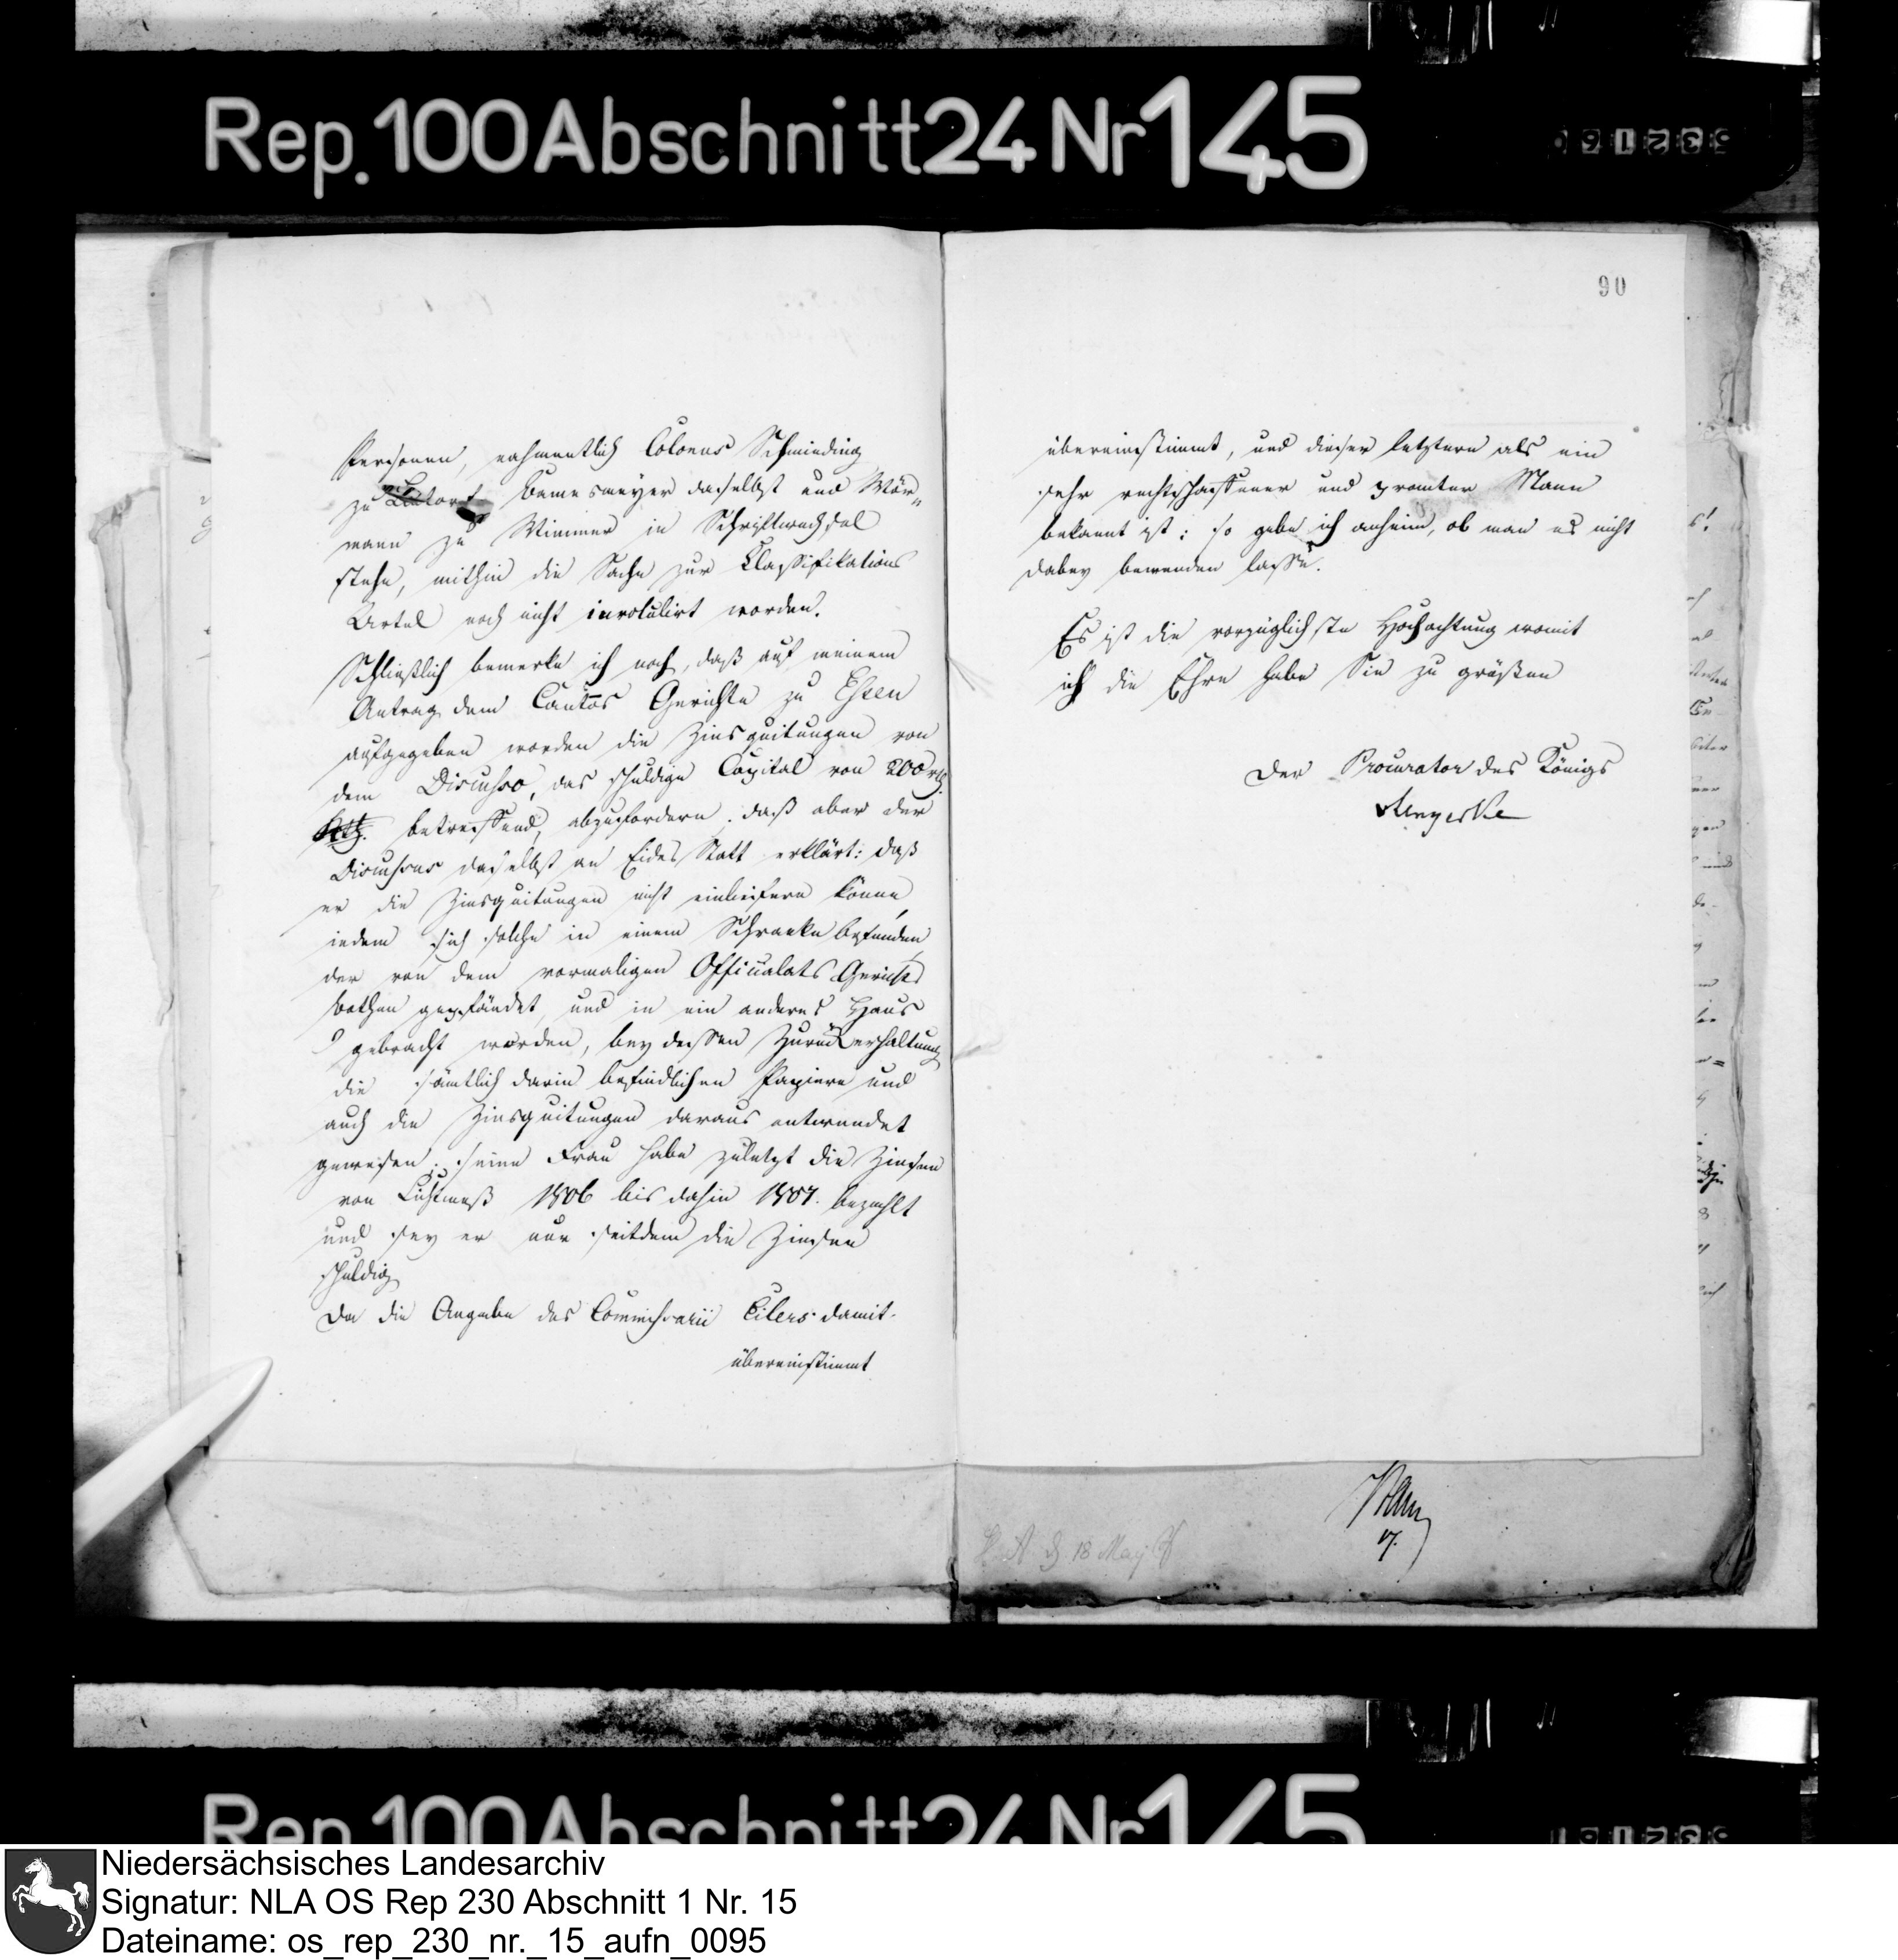 Rep. 100 Abschnitt 24 Nr 145
90
Personen, nahmentlich Colonus Schmieding
zu Lintorf Bemesmeyer daselbst und Wör„
mann zu Wimmer in Schriftwechsel
stehe, mithin die Sache zur Classifikations
Urtel noch nicht involulirt worden.
Schließlich bemerke ich noch, daß auf meinem
Antrag dem Cantos Gerichte zu Essen
aufgegeben worden die Zinsquitungen von
dem Discusso, das schuldige Capital von 200 rtl.
betreffend, abzufordern. daß aber der
Discussus daselbst an Eides Statt erklärt: daß
er die Zinsquitungen nicht einliefern könne,
indem sich solche in einem Schranke befunden
der von dem vormaligen Officialats Gerichts
bothen gepfändet und in ein anderes Haus
gebracht worden, bey dessen Zurückerhaltung
die sämtlich darin befindlichen Papiere und
auch die Zinsquitungen daraus entwendet
gewesen; seine Frau habe zuletzt die Zinsen
von Lichtmeß 1806 bis dahin 1807. bezahlt
und sey er nur seitdem die Zinsen
schuldig
Da die Angabe des Commissarii Eilers damit
übereinstimmt
übereinstimmt, und dieser letztere als ein
sehr rechtschaffener und promter Mann
bekannt ist: so gebe ich anheim, ob man es nicht
dabey bewenden lasse.
Es ist die vorzüglichste Hochachtung womit
ich die Ehre habe Sie zu grüßen
Der Procurator des Königs
18 May
Rep. 100 Abschnitt 24 Nr 145
Niedersächsisches Landesarchiv
Signatur: NLA OS Rep 230 Abschnitt 1 Nr. 15
Dateiname: os_rep_230_nr._15_aufn_0095